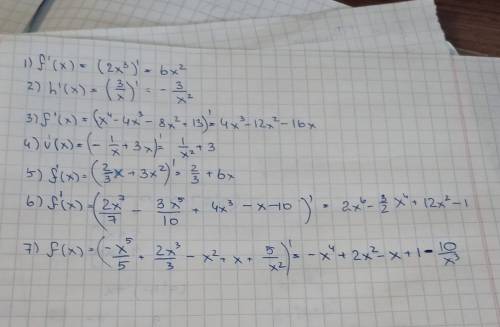 1) f'(x) = (2x³)' = 6x²
2) h'(x) = (3/x)' = - 3/x²
3) f'(x) = (x⁴ - 4x³ - 8x² + 13)' = 4x³ - 12x² - 16x
4) v'(x) = (- 1/x + 3x)' = 1/x² + 3
5) f'(x) = (2/3 x + 3x²)' = 2/3 + 6x
6) f'(x) = (2x⁷/7 - 3x⁵/10 + 4x³ - x - 10)' = 2x⁶ - 3/2 x⁴ + 12x² - 1
7) f(x) = (-x⁵/5 + 2x³/3 - x² + x + 5/x²)' = -x⁴ + 2x² - x + 1 - 10/x³